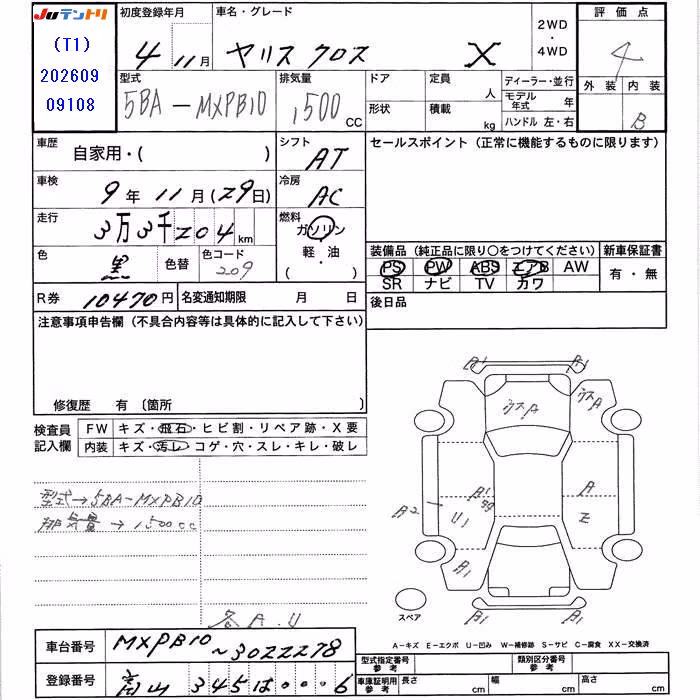 JUテントリ
(T1)
202609
09108
初度登録年月
4年 11月
車名・グレード
ヤリス クロス X
2WD
・
4WD
評価点
4
外装 内装
B
型式
5BA-MXPB10
排気量
1500 CC
ドア
形状
定員 人
積載 kg
ディーラー・並行
モデル年式 年
ハンドル 左・右
車歴
自家用・( )
シフト
AT
セールスポイント (正常に機能するものに限ります)
車検
9年 11月 (29日)
冷房
AC
走行
3万3千204 km
燃料
ガソリン
軽・油
( )
色
黒
色替
色コード
209
装備品 (純正品に限り○をつけてください)
PS PW ABS エアB AW
SR ナビ TV カワ
新車保証書
有・無
R券 10470円
名変通知期限 月 日
後日品
注意事項申告欄 (不具合内容等は具体的に記入して下さい)
修復歴 有 〔箇所 〕
検査員
記入欄
FW キズ・飛石・ヒビ割・リペア跡・X要
内装 キズ・汚レ・コゲ・穴・スレ・キレ・破レ
型式→5BA-MXPB10
排気量→1500cc
各A.U
A1
A1
ウスA
ウスA
A2
U1
A
B1
B1
B1
スペア
A-キズ E-エクボ U-凹み W-補修跡 S-サビ C-腐食 XX-交換済
車台番号 MXPB10~3022278
登録番号 富山 345 は ・・・6
型式指定番号
参考
類別区分番号
参考
車庫証明用
参考
長さ cm
幅 cm
高さ cm